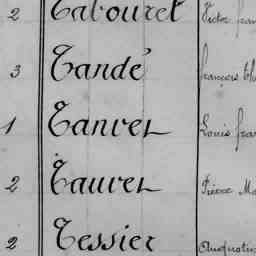 2 Tabouret Victor fran
3 Tandé françois
1 Tanret Louis fran
2 Tauret Pierre Ma
2 Tessier Augustin